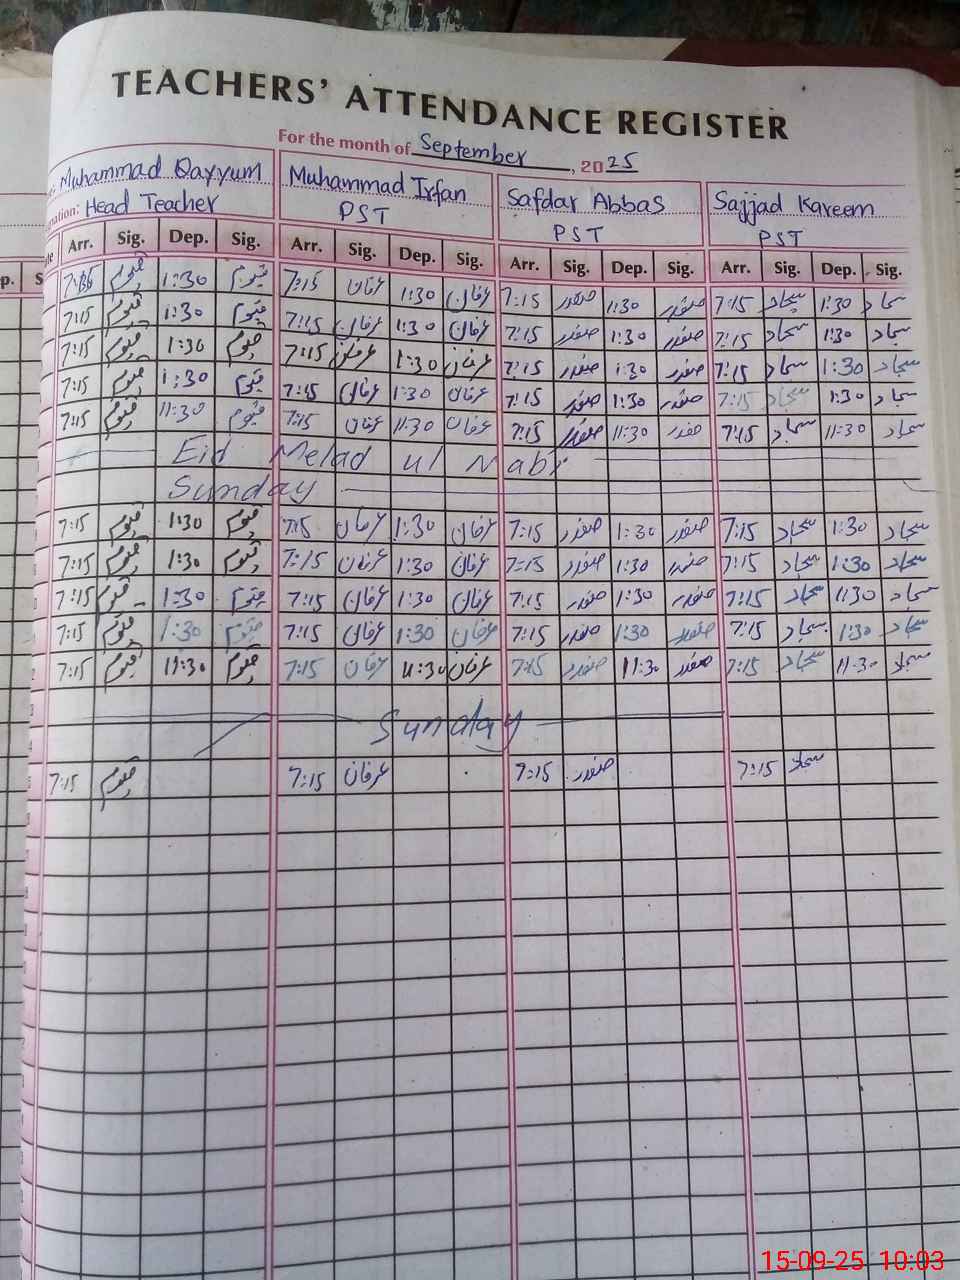 TEACHERS' ATTENDANCE REGISTER
For the month of September, 2025
Muhammad Qayyum Muhammad Irfan Safdar Abbas Sajjad Kareem
nation: Head Teacher PST PST PST
p. S Arr. Sig. Dep. Sig. Arr. Sig. Dep. Sig. Arr. Sig. Dep. Sig. Arr. Sig. Dep. Sig.
قیوم 1:30 قیوم 7:15 عرفان 1:30 عرفان 7:15 صفدر 1:30 صفدر 7:15 سجاد 1:30 سجاد
7:15 قیوم 1:30 قیوم 7:15 عرفان 1:30 عرفان 7:15 صفدر 1:30 صفدر 7:15 سجاد 1:30 سجاد
7:15 قیوم 1:30 قیوم 7:15 عرفان 1:30 عرفان 7:15 صفدر 1:30 صفدر 7:15 سجاد 1:30 سجاد
7:15 قیوم 1:30 قیوم 7:15 عرفان 1:30 عرفان 7:15 صفدر 1:30 صفدر 7:15 سجاد 1:30 سجاد
7:15 قیوم 11:30 قیوم 7:15 عرفان 11:30 عرفان 7:15 صفدر 11:30 صفدر 7:15 سجاد 11:30 سجاد
Eid Melad ul Nabi
Sunday
7:15 قیوم 1:30 قیوم 7:15 عرفان 1:30 عرفان 7:15 صفدر 1:30 صفدر 7:15 سجاد 1:30 سجاد
7:15 قیوم 1:30 قیوم 7:15 عرفان 1:30 عرفان 7:15 صفدر 1:30 صفدر 7:15 سجاد 1:30 سجاد
7:15 قیوم 1:30 قیوم 7:15 عرفان 1:30 عرفان 7:15 صفدر 1:30 صفدر 7:15 سجاد 1:30 سجاد
7:15 قیوم 1:30 قیوم 7:15 عرفان 1:30 عرفان 7:15 صفدر 1:30 صفدر 7:15 سجاد 1:30 سجاد
7:15 قیوم 11:30 قیوم 7:15 عرفان 11:30 عرفان 7:15 صفدر 11:30 صفدر 7:15 سجاد 11:30 سجاد
Sunday
7:15 قیوم 7:15 عرفان 7:15 صفدر 7:15 سجاد
15-09-25 10:03